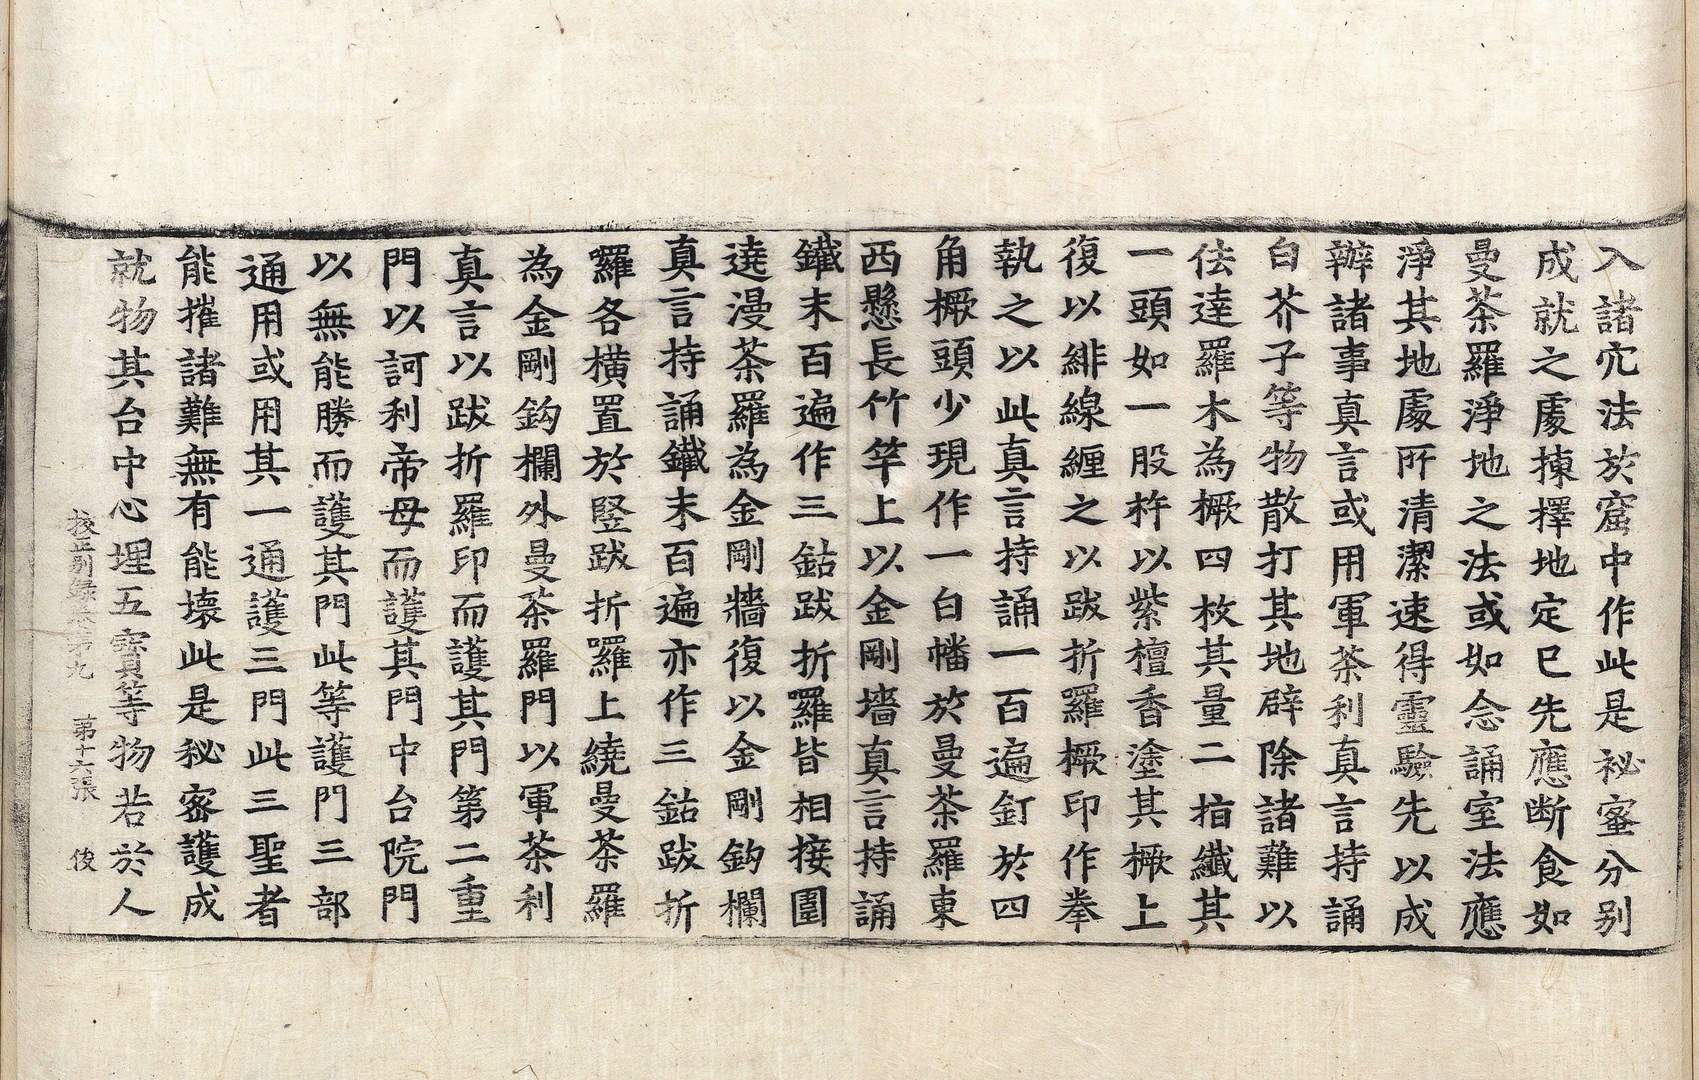 入諸宂法於窟中作此是祕蜜分別
成就之處揀擇地定已先應断食如
曼茶羅淨地之法或如念誦室法應
淨其地處所清潔速得靈驗先以成
辦諸事真言或用軍茶利真言持誦
白芥子等物散打其地辟除諸難以
佉達羅木為橛四枚其量二指纖其
一頭如一股杵以紫檀香塗其橛上
復以緋線纏之以跋折囉橛印作拳
執之以此真言持誦一百遍釘於四
角橛頭少現作一白幡於曼茶羅東
西懸長竹竿上以金剛墻真言持誦
鐵末百遍作三鈷跋折羅皆相接圍
遶漫茶羅為金剛牆復以金剛鈎欄
真言持誦鐵末百遍亦作三鈷跋折
囉各橫置於竪跋折囉上繞曼茶羅
為金剛鈎欄外曼茶羅門以軍茶利
真言以跋折羅印而護其門第二重
門以訶利帝母而護其門中台院門
以無能勝而護其門此等護門三部
通用或用其一通護三門此三聖者
能摧諸難無有能壞此是秘密護成
就物其台中心埋五寶等物若於人
校正別錄卷第九 第十六張 俊